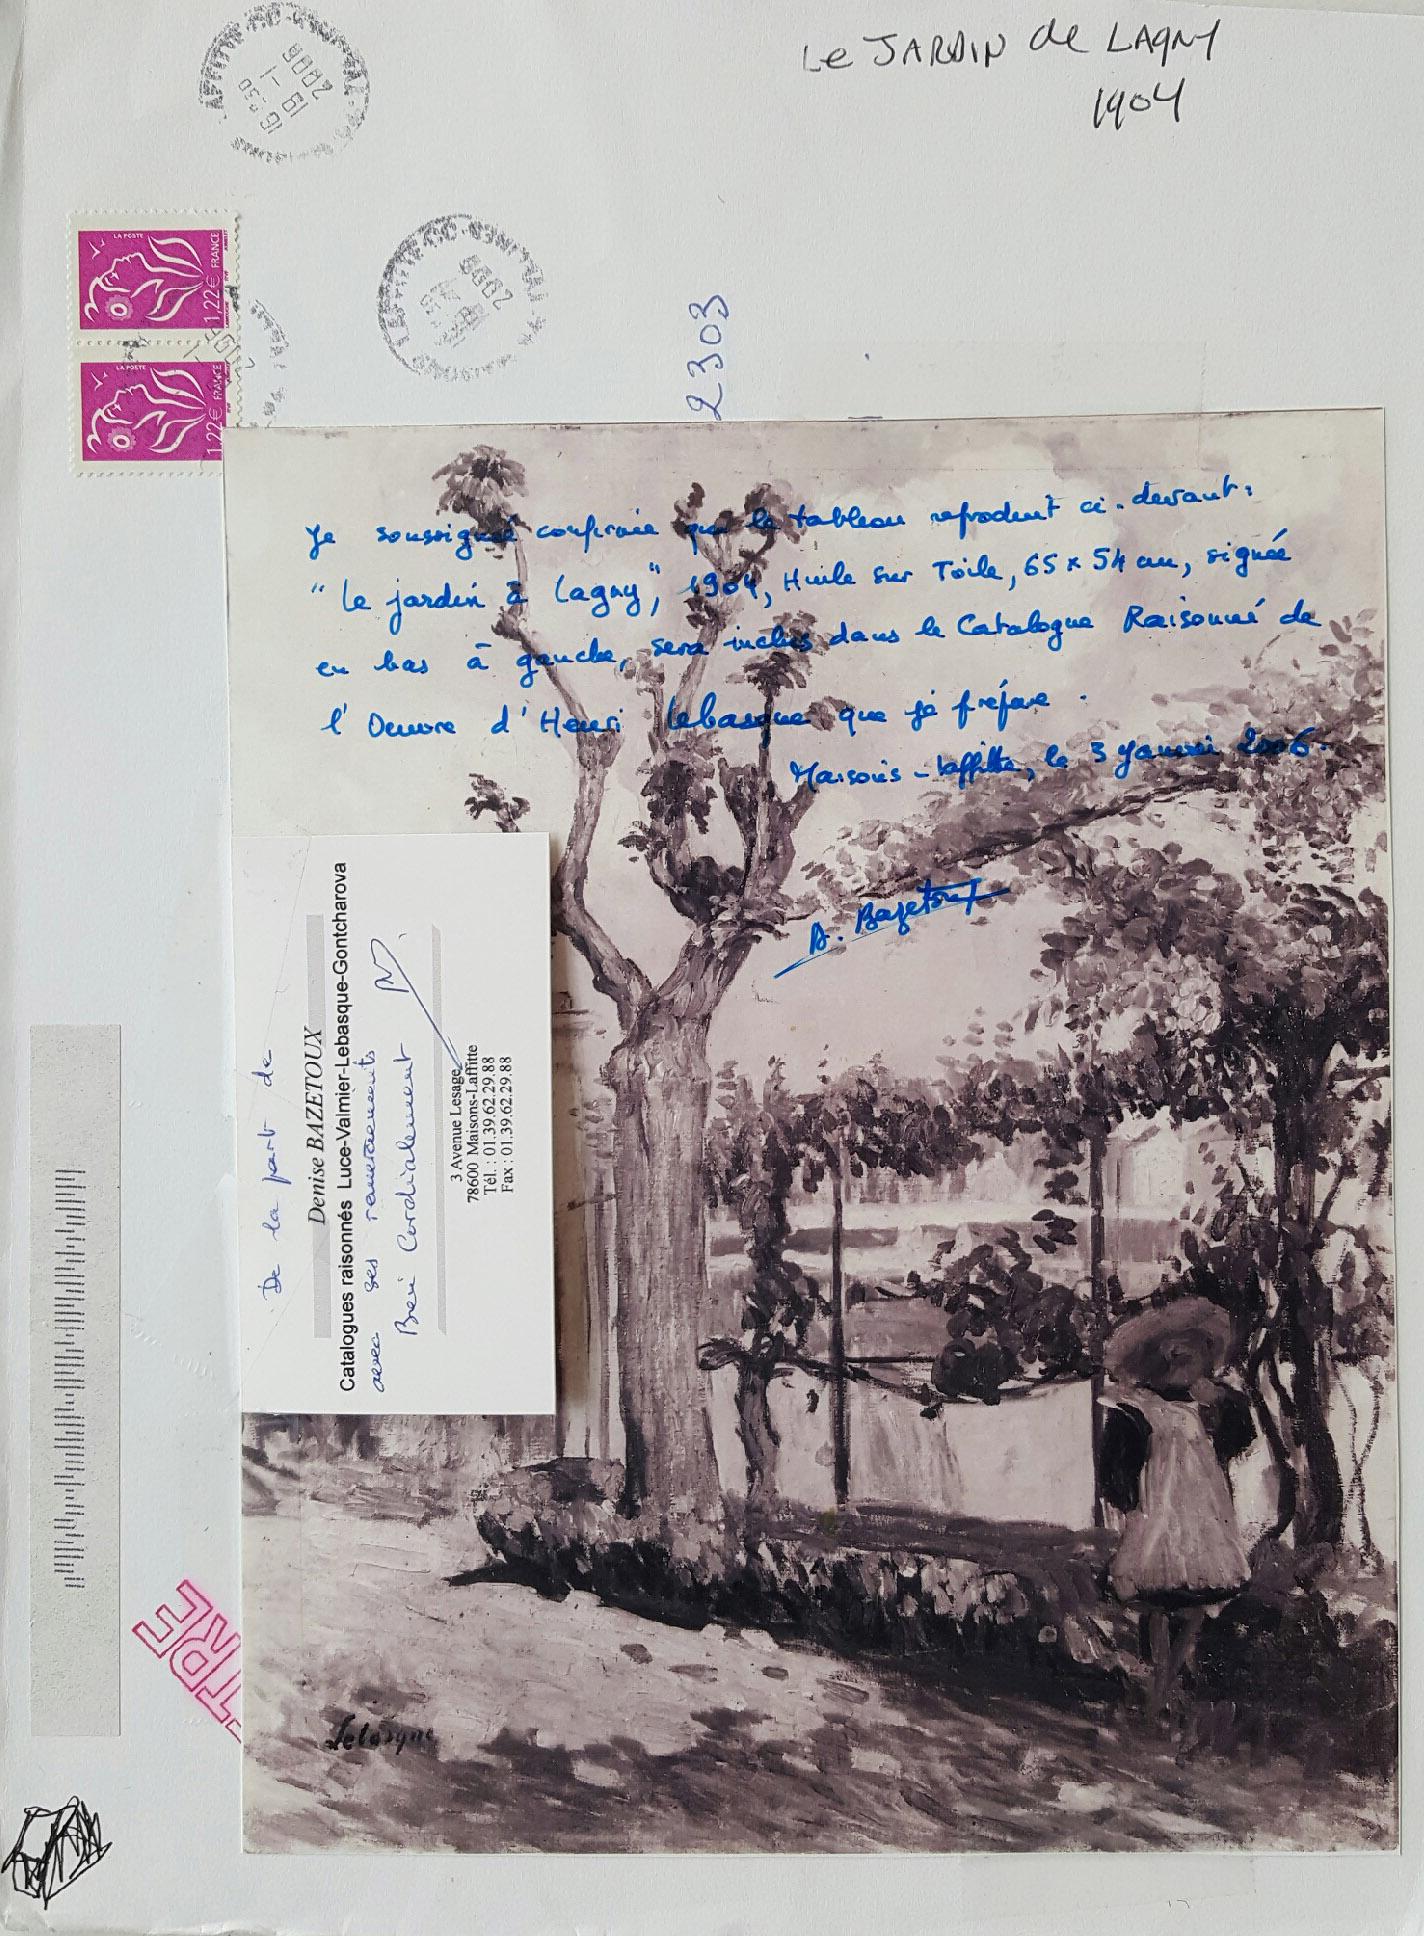 Le JARDIN de LAGNY
1904
19-1
2006
LA POSTE
1,22€ FRANCE
LA POSTE
1,22€ FRANCE
2303
Je soussigné confirme que le tableau reproduit ci-devant:
"Le jardin à Lagny", 1904, Huile sur Toile, 65 x 54 cm, signée
en bas à gauche, sera inclus dans le Catalogue Raisonné de
l'Oeuvre d'Henri Lebasque que je prépare.
Maisons-Laffitte, le 3 Janvier 2006.
D. Bazetoux
De la part de
Denise BAZETOUX
Catalogues raisonnés Luce-Valmier-Lebasque-Gontcharova
avec ses remerciements
Bien Cordialement
3 Avenue Lesage
78600 Maisons-Laffitte
Tél. : 01.39.62.29.88
Fax : 01.39.62.29.88
TRE
Lebasque